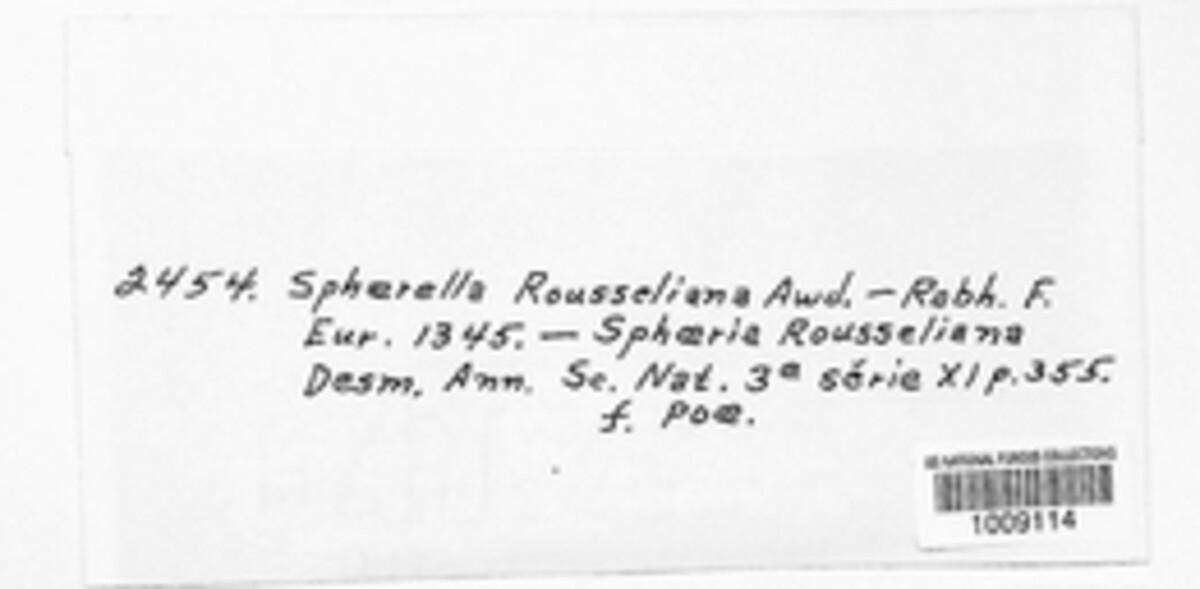 2454. Sphærella Rousseliana Awd. — Rabh. F.
Eur. 1345. — Sphæria Rousseliana
Desm. Ann. Sc. Nat. 3e série XI p. 355.
f. Poæ.
US NATIONAL FUNGUS COLLECTIONS
1009114